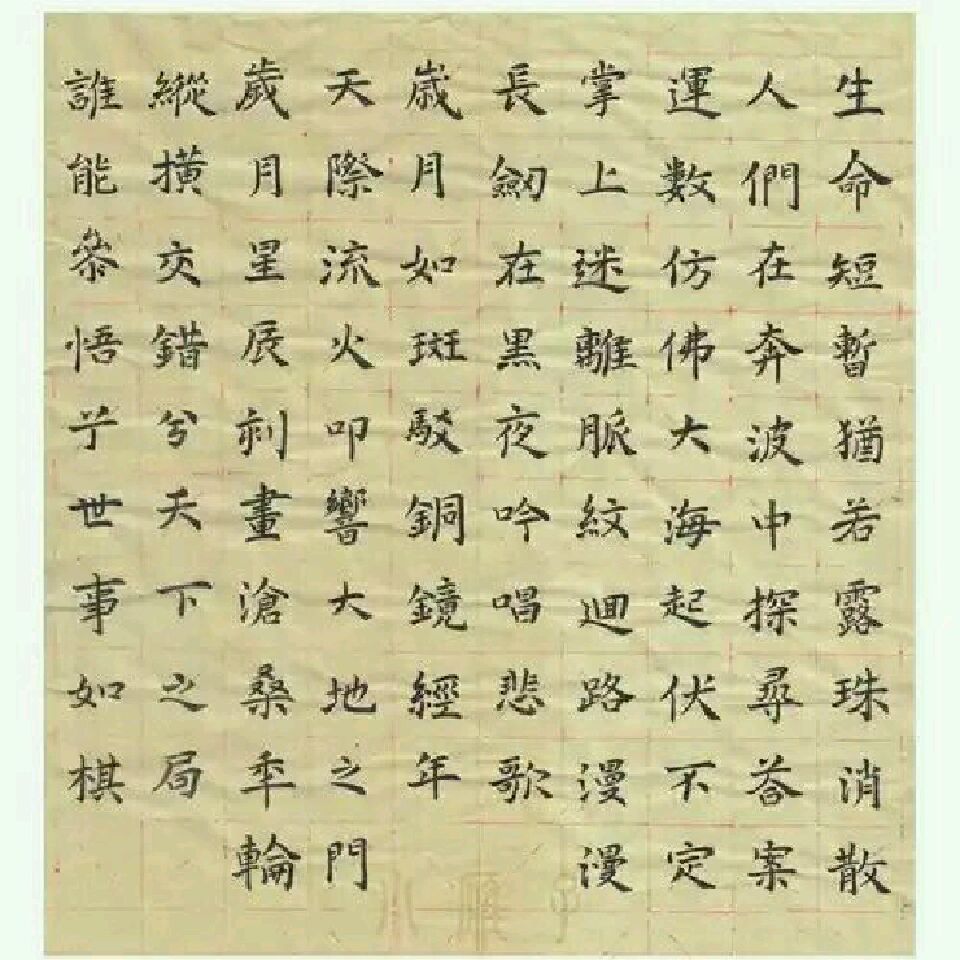 生命短暫猶若露珠消散
人們在奔波中探尋答案
運數仿佛大海起伏不定
掌上迷離脈紋迴路漫漫
長劒在黑夜吟唱悲歌
歲月如斑駁銅鏡經年
天際流火叩響大地之門
歲月星辰刻畫滄桑年輪
縱橫交錯兮天下之局
誰能參悟乎世事如棋